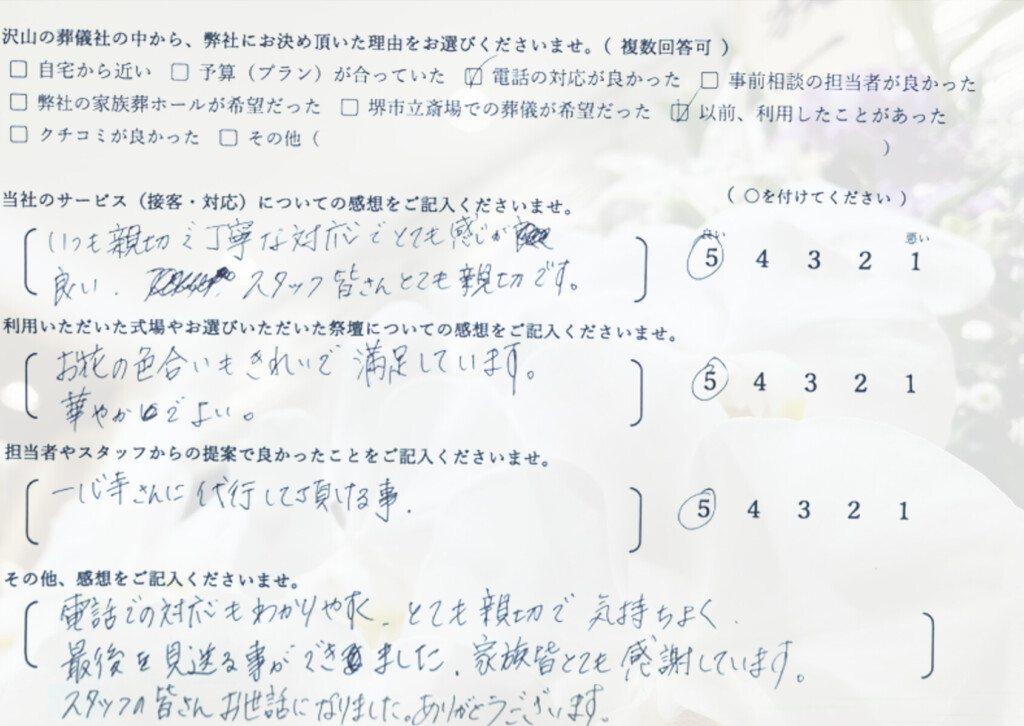 沢山の葬儀社の中から、弊社にお決め頂いた理由をお選びくださいませ。( 複数回答可 )
□ 自宅から近い □ 予算（プラン）が合っていた ☑ 電話の対応が良かった □ 事前相談の担当者が良かった
□ 弊社の家族葬ホールが希望だった □ 堺市立斎場での葬儀が希望だった ☑ 以前、利用したことがあった
□ クチコミが良かった □ その他（ ）
当社のサービス（接客・対応）についての感想をご記入くださいませ。 （ ○を付けてください ）
いつも親切で丁寧な対応でとても感じが
良い. スタッフ皆さんとても親切です。
良い 悪い
5 4 3 2 1
利用いただいた式場やお選びいただいた祭壇についての感想をご記入くださいませ。
お花の色合いもきれいで満足しています。
華やかでよい。
5 4 3 2 1
担当者やスタッフからの提案で良かったことをご記入くださいませ。
一心寺さんに代行して頂ける事.
5 4 3 2 1
その他、感想をご記入くださいませ。
電話での対応もわかりやすく、とても親切で気持ちよく
最後を見送る事ができました. 家族皆とても感謝しています。
スタッフの皆さんお世話になりました。ありがとうございます。